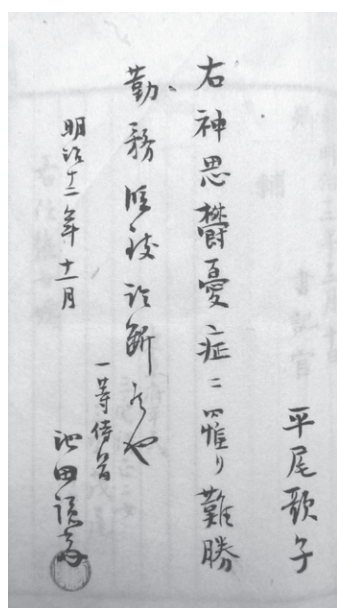 平尾歌子
右神思鬱憂症ニ罹リ難勝
勤務 致診断候也
明治十二年十一月
一等侍医
池田謙斎